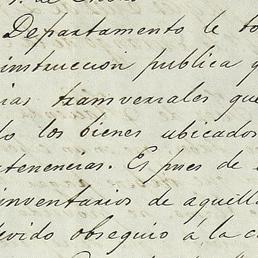 Departamento le to
instruccion publica q
ias tranverrales que
do los bienes ubicados
rtenencias. Es pues de
inventarios de aquella
devido obsequio á la c